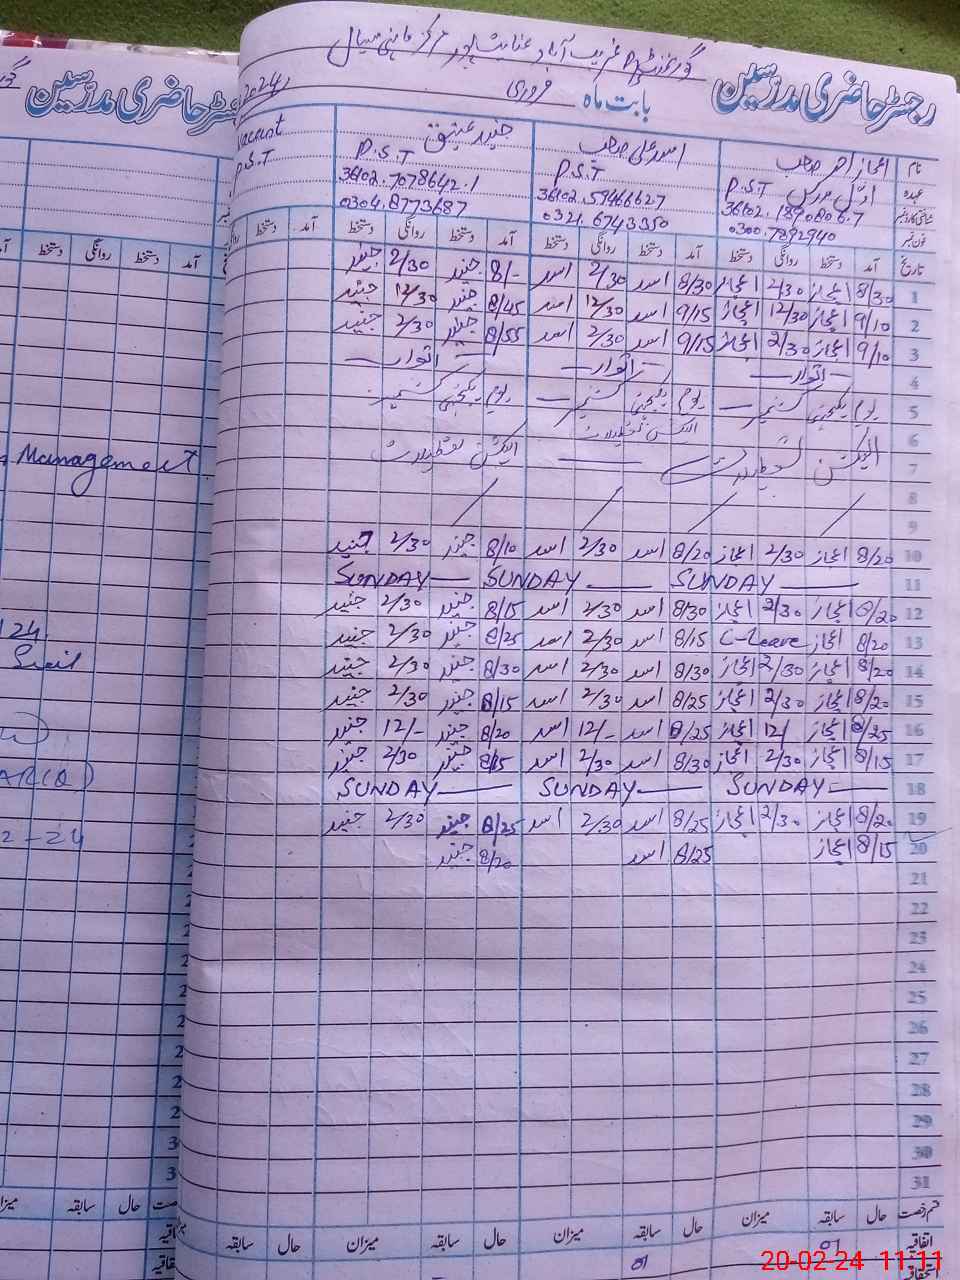 گورنمنٹ پرائمری سکول غریب آباد عنایت پور مرکز ماہنی سیال
رجسٹر حاضری مدرسین بابت ماہ فروری 2024ء
نام اعجاز احمد صاحب اسد علی صاحب جنید عتیق Vacant
عہدہ P.S.T P.S.T P.S.T P.S.T
36102.1890806.7 36102.5946662.7 36102.7078642.1
فون نمبر 0300.7892940 0321.6743350 0304.8773687
تاریخ آمد دستخط روانگی دستخط آمد دستخط روانگی دستخط آمد دستخط روانگی دستخط آمد دستخط
1 8/30 اعجاز 2/30 اعجاز 8/30 اسد 2/30 اسد 8/- جنید 2/30 جنید
2 9/10 اعجاز 12/30 اعجاز 9/15 اسد 12/30 اسد 8/45 جنید 12/30 جنید
3 9/10 اعجاز 2/30 اعجاز 9/15 اسد 2/30 اسد 8/55 جنید 2/30 جنید
4 اتوار اتوار اتوار
5 یوم یکجہتی کشمیر یوم یکجہتی کشمیر یوم یکجہتی کشمیر
6 الیکشن تعطیلات
7 الیکشن تعطیلات الیکشن تعطیلات
8
9
10 8/20 اعجاز 2/30 اعجاز 8/20 اسد 2/30 اسد 8/10 جنید 2/30 جنید
11 SUNDAY SUNDAY SUNDAY
12 8/20 اعجاز 2/30 اعجاز 8/30 اسد 2/30 اسد 8/15 جنید 2/30 جنید
13 8/20 اعجاز C-Leave 8/15 اسد 2/30 اسد 8/25 جنید 2/30 جنید
14 8/20 اعجاز 2/30 اعجاز 8/30 اسد 2/30 اسد 8/30 جنید 2/30 جنید
15 8/20 اعجاز 2/30 اعجاز 8/25 اسد 2/30 اسد 8/15 جنید 2/30 جنید
16 8/25 اعجاز 12/ اعجاز 8/25 اسد 12/- اسد 8/20 جنید 12/- جنید
17 8/15 اعجاز 2/30 اعجاز 8/30 اسد 2/30 اسد 8/15 جنید 2/30 جنید
18 SUNDAY SUNDAY SUNDAY
19 8/20 اعجاز 2/30 اعجاز 8/25 اسد 2/30 اسد 8/25 جنید 2/30 جنید
20 8/15 اعجاز 8/25 اسد 8/20 جنید
21
22
23
24
25
26
27
28
29
30
31
قسم رخصت حال سابقہ میزان حال سابقہ میزان حال سابقہ میزان حال سابقہ
اتفاقیہ 01 01
استحقاقیہ
رجسٹر حاضری مدرسین
آمد دستخط روانگی دستخط
Management
حال سابقہ میزان
20-02-24 11:11